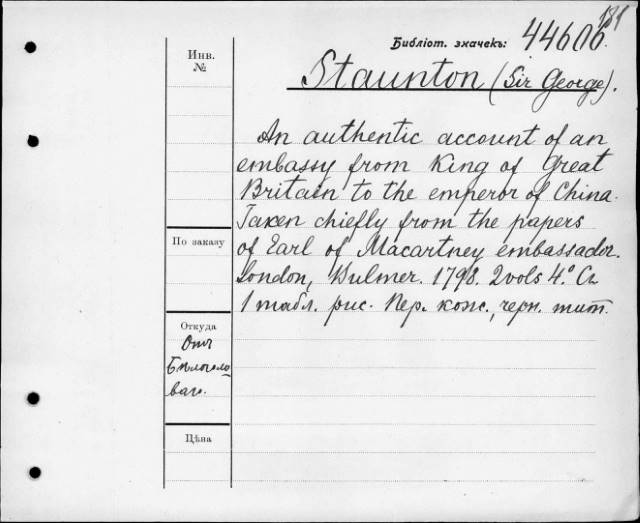 181
Библіот. значекъ: 44606.
Инв.
№
Staunton (Sir George).
An authentic account of an
embassy from King of Great
Britain to the emperor of China.
Taken chiefly from the papers
of Earl of Macartney embassador.
London, Bulmer. 1798. 2 vols 4.° Съ
1 табл. рис. Пер. кожс., черн. тит.
По заказу
Откуда
Отъ
Бѣлоголо
ваго.
Цѣна